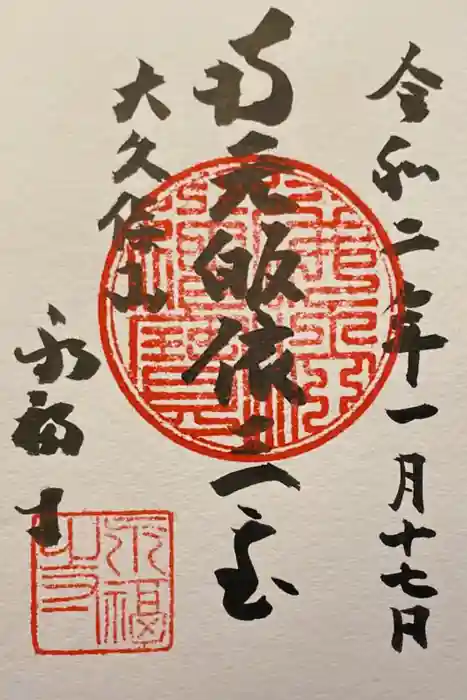 令和二年一月十七日
南无皈依三宝
大久保山
永福寺
永福